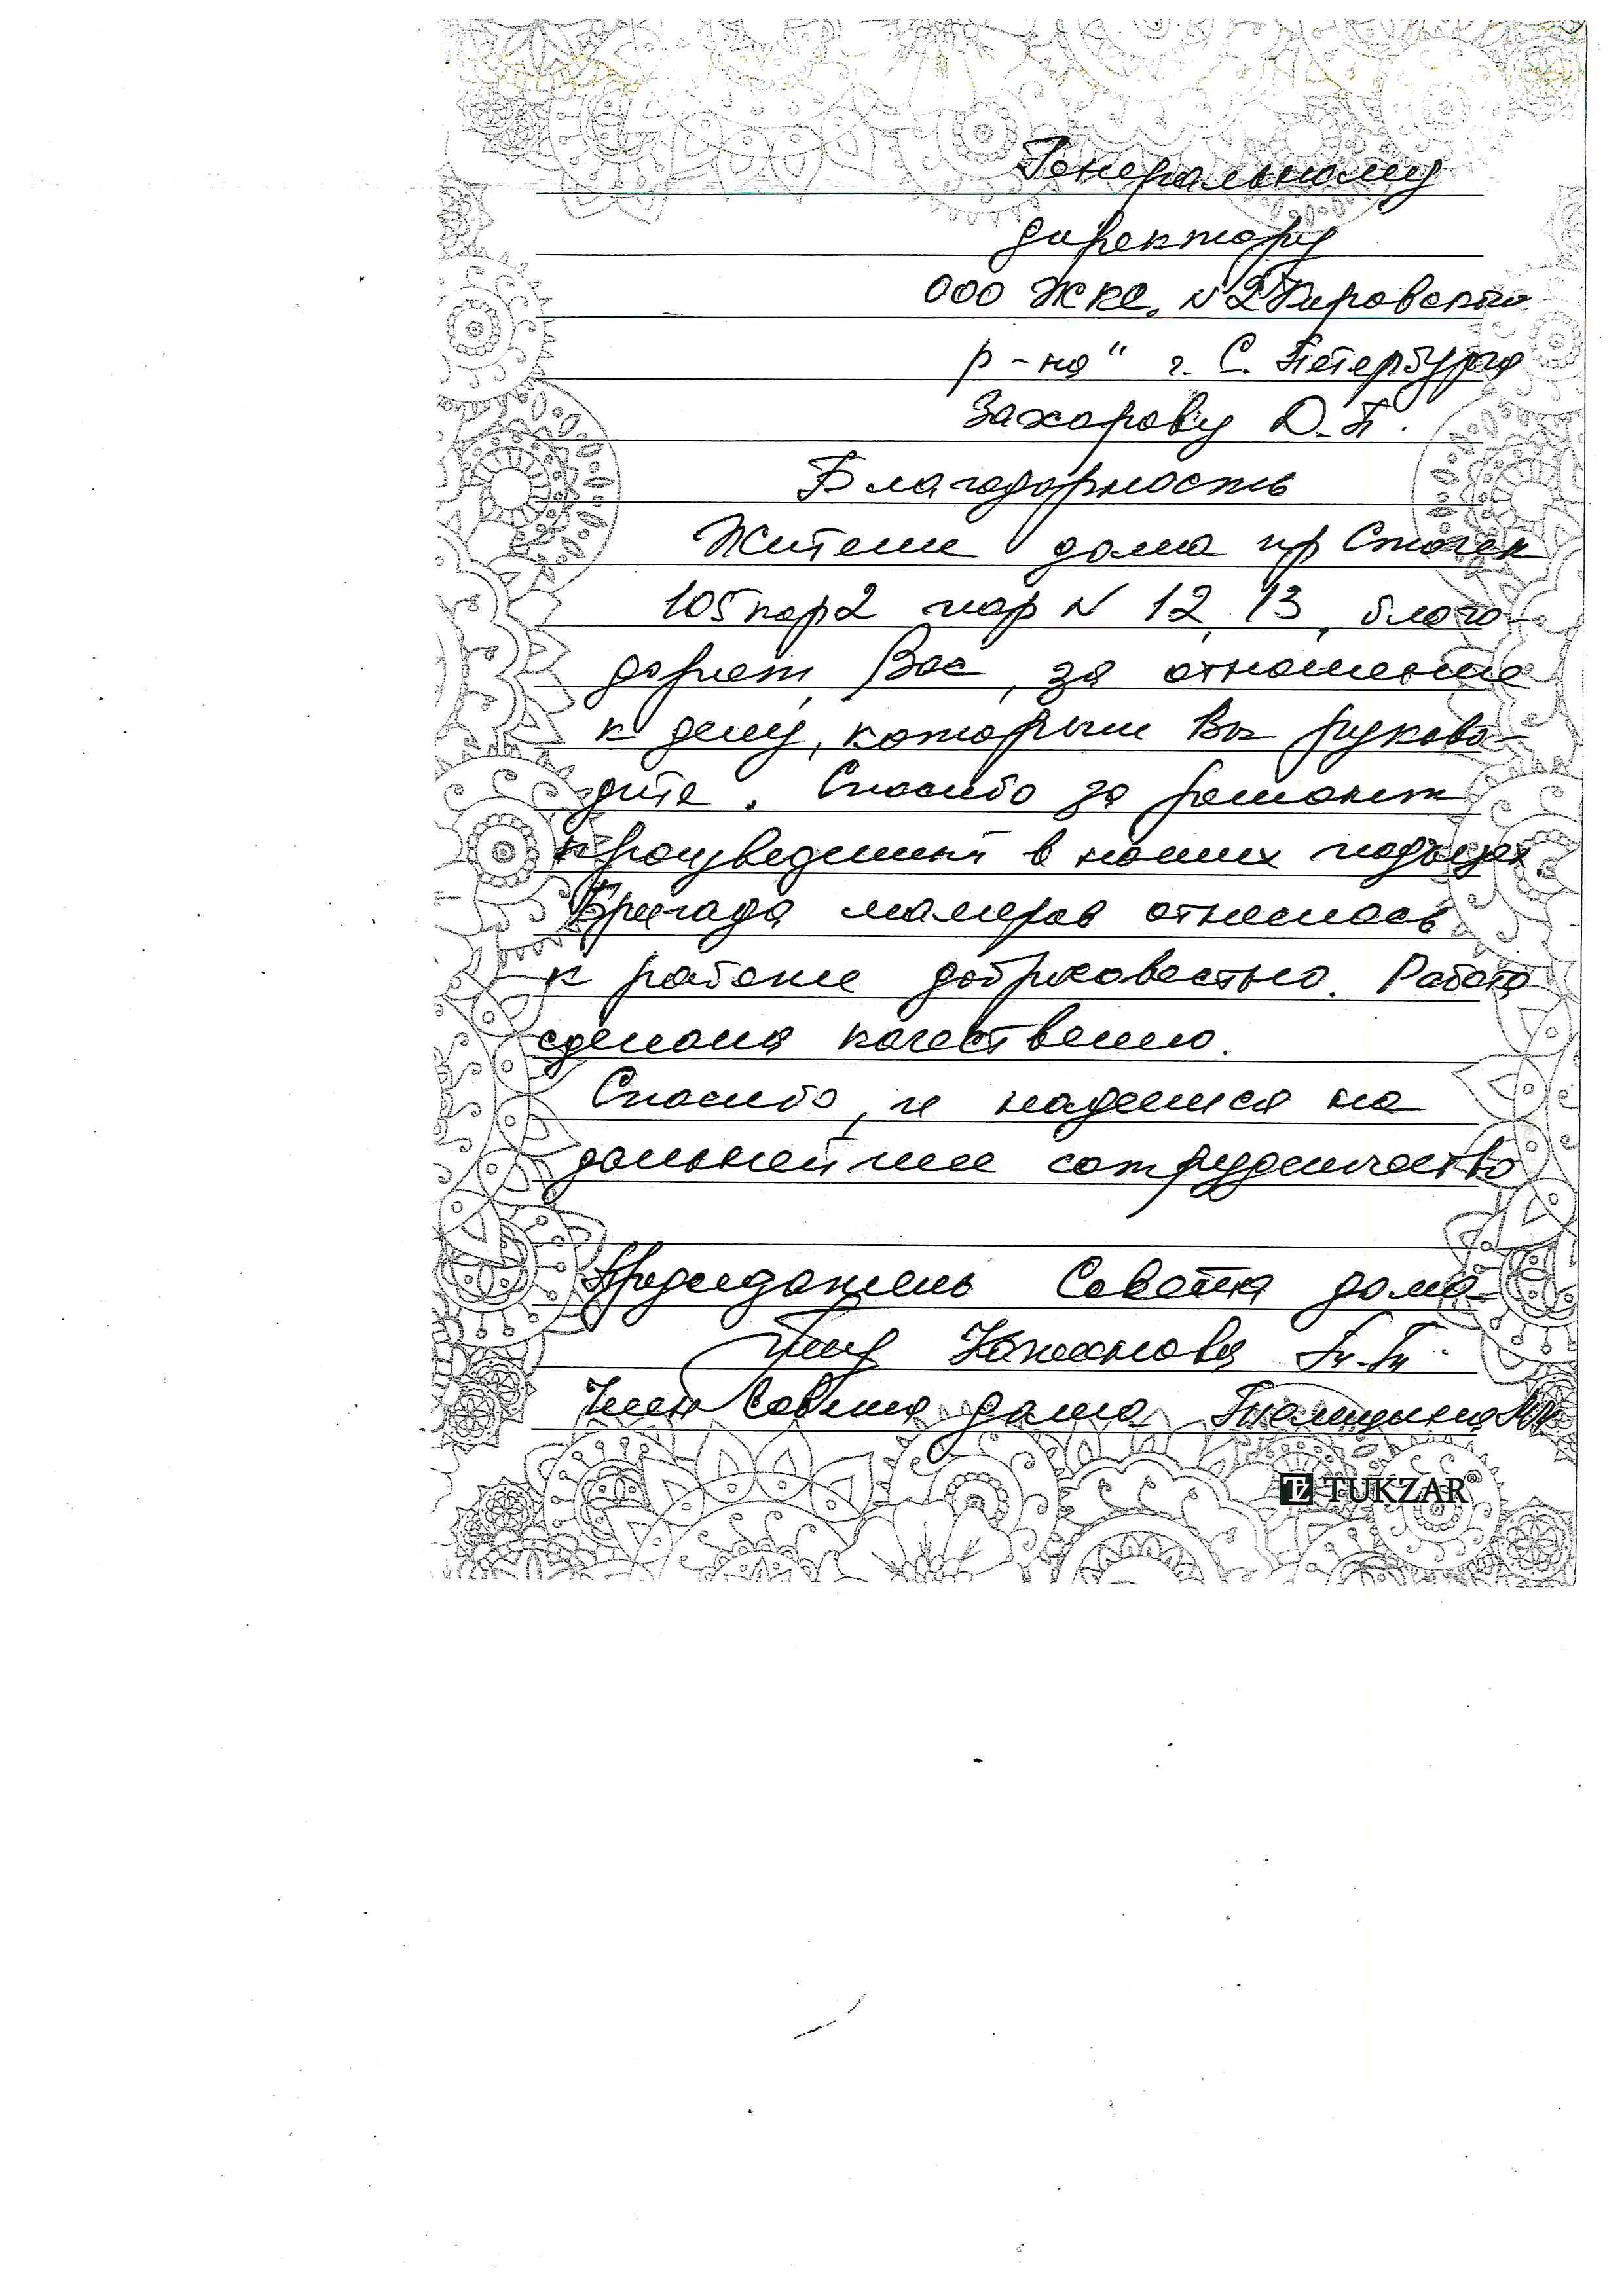 Генеральному
директору
ООО ЖКС. N2 Кировского
р-на" г. С. Петербурга
Захарову Д.П.
Благодарность
Жители дома пр Стачек
105 кор 2 пар N 12, 13, благо-
дарят Вас, за отношение
к делу, которым Вы руково-
дите. Спасибо за ремонт
произведенный в наших подъездах
Бригада маляров отнеслась
к работе добросовестно. Работа
сделана качественно.
Спасибо, и надеемся на
дальнейшее сотрудничество
Председатель Совета дома
Член Совета дома
TZ TUKZAR®